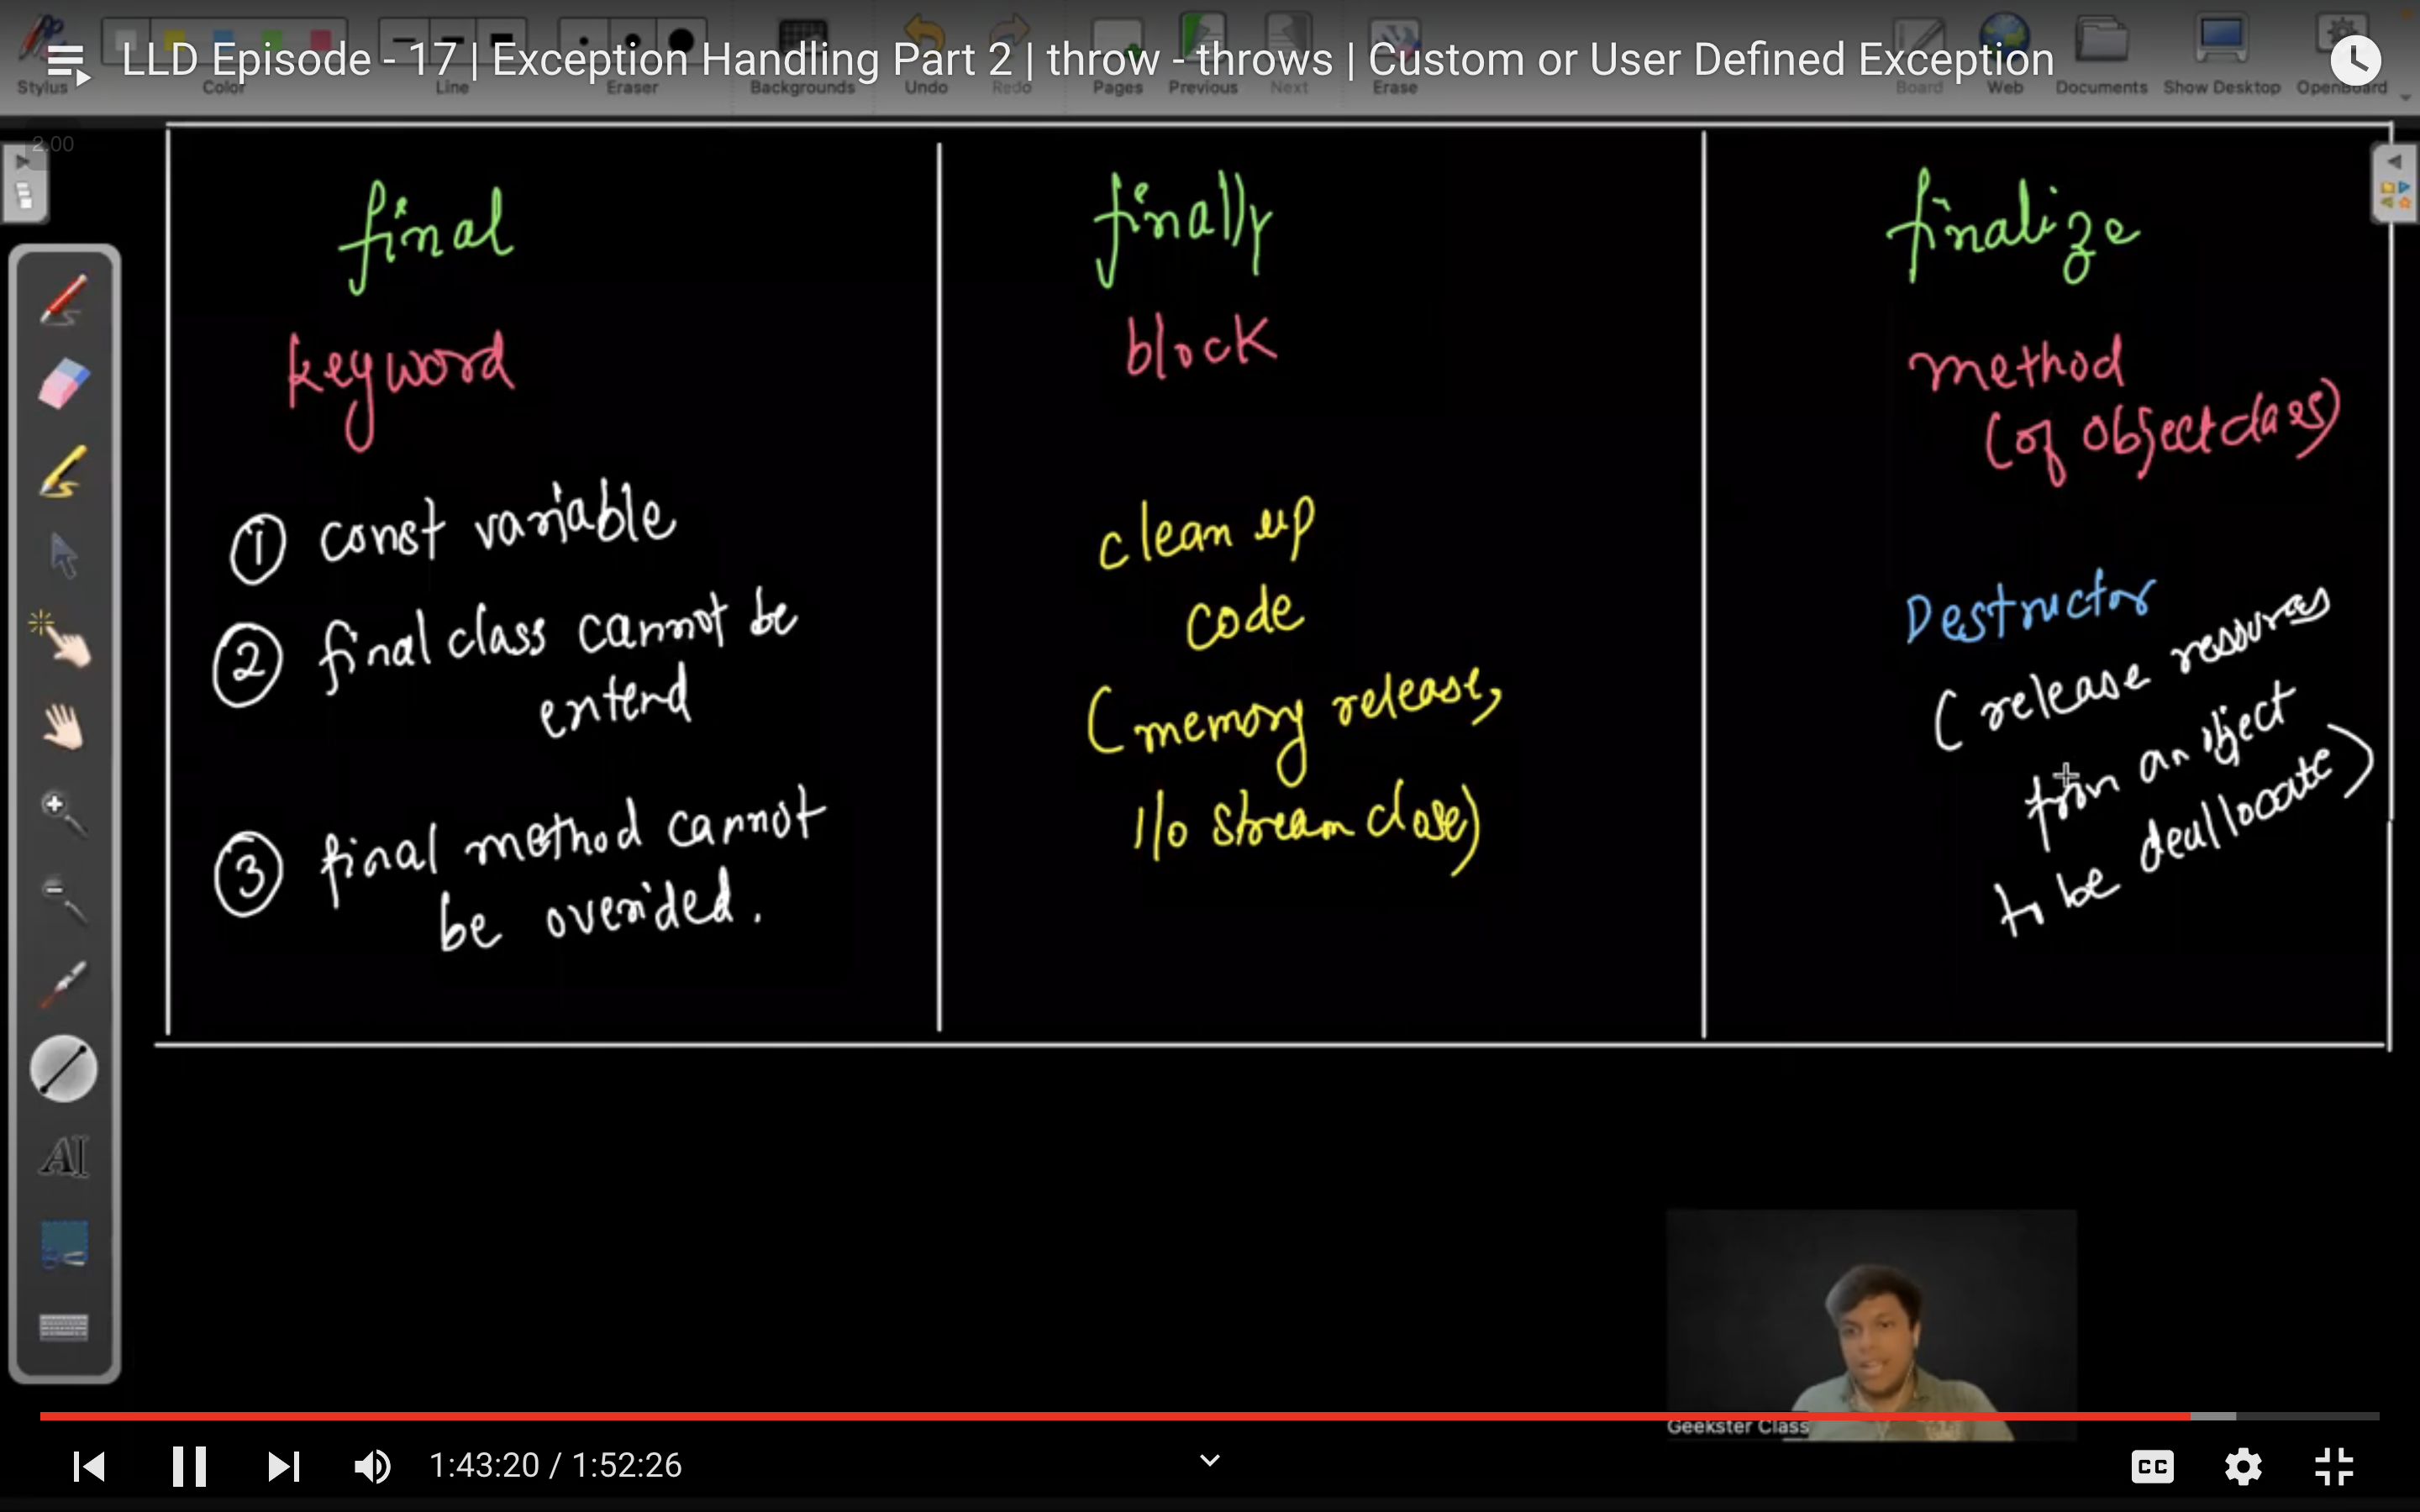 LLD Episode - 17 | Exception Handling Part 2 | throw - throws | Custom or User Defined Exception
Stylus Color Line Eraser Backgrounds Undo Redo Pages Previous Next Erase Board Web Documents Show Desktop OpenBoard
2.00
final
keyword
① const variable
② final class cannot be
extend
③ final method cannot
be overided.
finally
block
clean up
code
(memory release,
I/O stream close)
finalize
method
(of object class)
Destructor
(release resources
from an object
to be deallocate)
AI
Geekster Class
1:43:20 / 1:52:26
CC